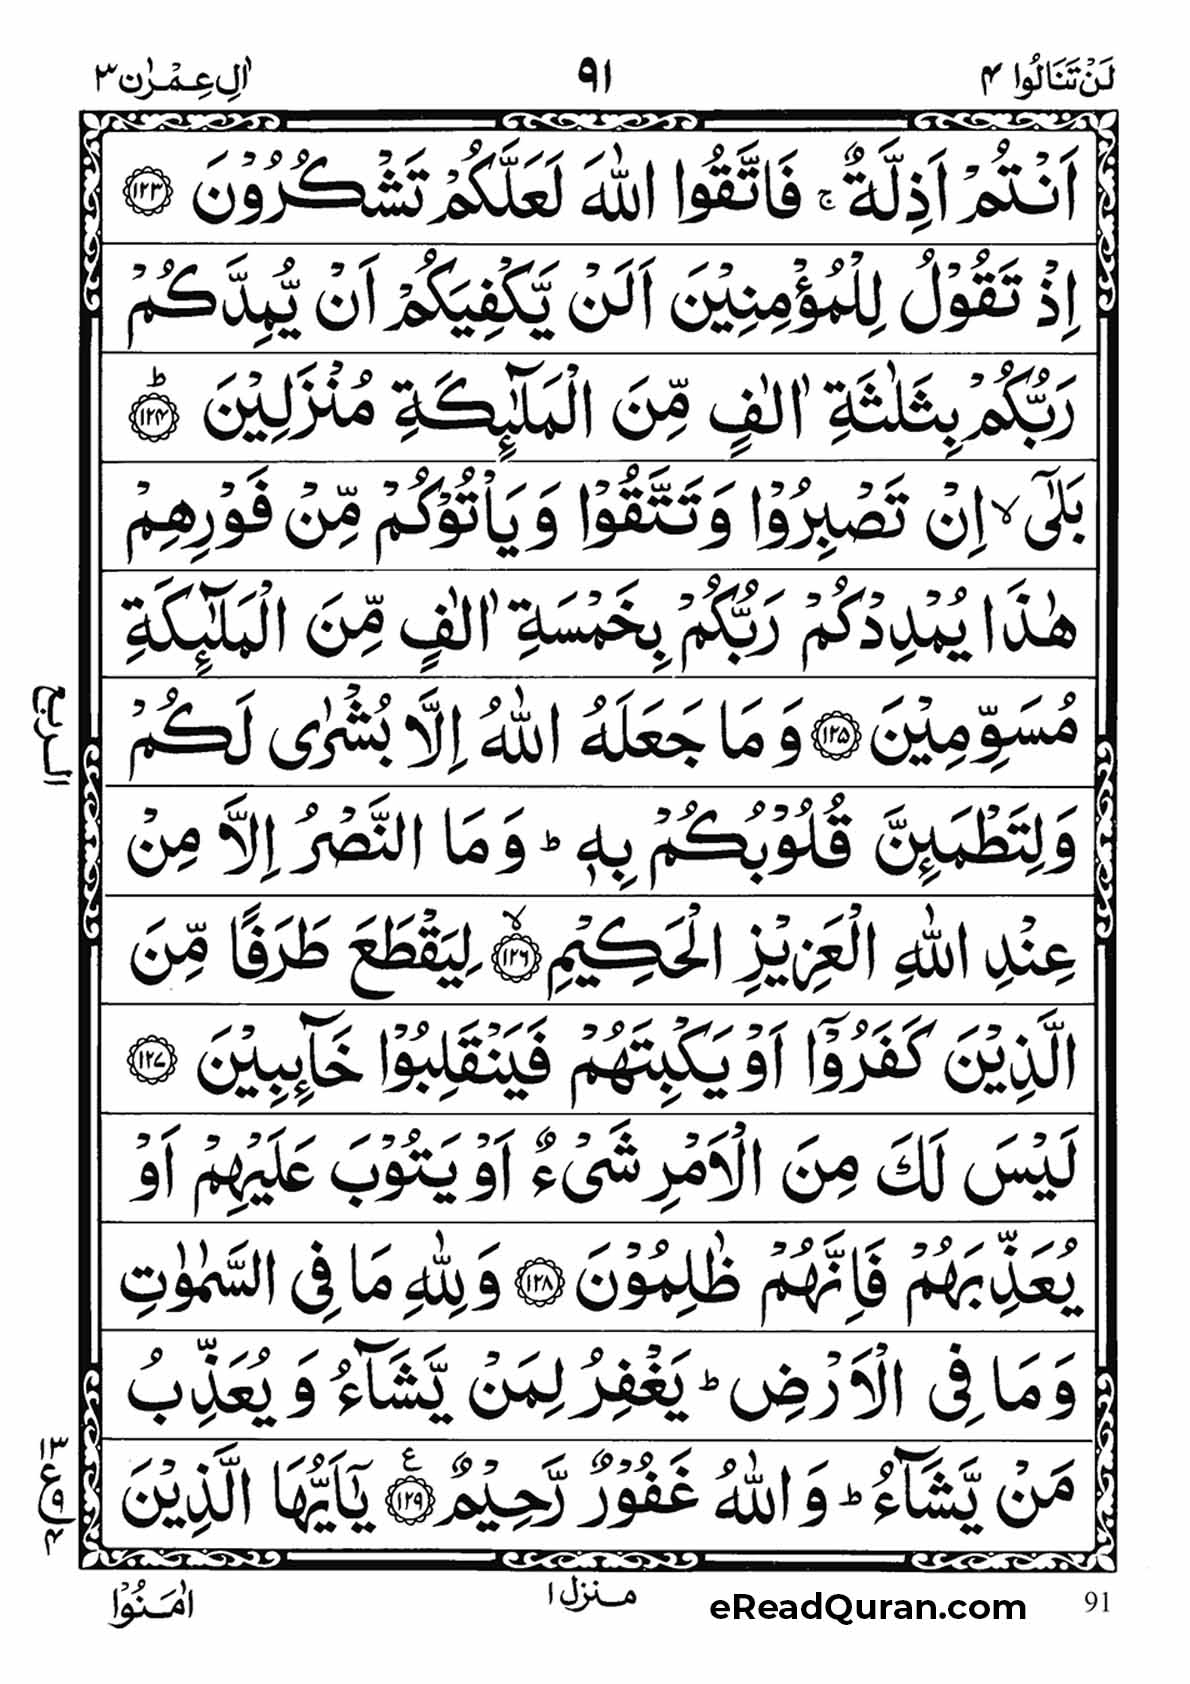 لَنْ تَنَالُوا ٤ ٩١ اٰلِ عِمْرٰن ٣
اَنْتُمْ اَذِلَّةٌ ۚ فَاتَّقُوا اللّٰهَ لَعَلَّكُمْ تَشْكُرُوْنَ ١٢٣
اِذْ تَقُوْلُ لِلْمُؤْمِنِيْنَ اَلَنْ يَّكْفِيَكُمْ اَنْ يُّمِدَّكُمْ
رَبُّكُمْ بِثَلٰثَةِ اٰلٰفٍ مِّنَ الْمَلٰٓئِكَةِ مُنْزَلِيْنَ ؕ ١٢٤
بَلٰٓى ۙ اِنْ تَصْبِرُوْا وَتَتَّقُوْا وَيَاْتُوْكُمْ مِّنْ فَوْرِهِمْ
هٰذَا يُمْدِدْكُمْ رَبُّكُمْ بِخَمْسَةِ اٰلٰفٍ مِّنَ الْمَلٰٓئِكَةِ
مُسَوِّمِيْنَ ١٢٥ وَمَا جَعَلَهُ اللّٰهُ اِلَّا بُشْرٰى لَكُمْ
وَلِتَطْمَئِنَّ قُلُوْبُكُمْ بِهٖ ؕ وَمَا النَّصْرُ اِلَّا مِنْ
عِنْدِ اللّٰهِ الْعَزِيْزِ الْحَكِيْمِ ۙ ١٢٦ لِيَقْطَعَ طَرَفًا مِّنَ
الَّذِيْنَ كَفَرُوْٓا اَوْ يَكْبِتَهُمْ فَيَنْقَلِبُوْا خَآئِبِيْنَ ١٢٧
لَيْسَ لَكَ مِنَ الْاَمْرِ شَيْءٌ اَوْ يَتُوْبَ عَلَيْهِمْ اَوْ
يُعَذِّبَهُمْ فَاِنَّهُمْ ظٰلِمُوْنَ ١٢٨ وَلِلّٰهِ مَا فِى السَّمٰوٰتِ
وَمَا فِى الْاَرْضِ ؕ يَغْفِرُ لِمَنْ يَّشَآءُ وَيُعَذِّبُ
مَنْ يَّشَآءُ ؕ وَاللّٰهُ غَفُوْرٌ رَّحِيْمٌ ع ١٢٩ يٰٓاَيُّهَا الَّذِيْنَ
الربع
١٣
ع ٩
٤
اٰمَنُوْا منزل ١ eReadQuran.com 91